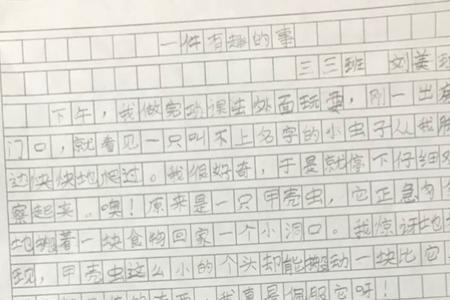 一件有趣的事
三三班 刘美
下午，我做完功课出外面玩耍，刚一出
门口，就看见一只叫不上名字的小虫子从我
边快快地爬过。我很好奇，于是就停下仔细
察起来。噢！原来是一只甲壳虫，它正急
地拖着一块食物回家一个小洞口。我惊讶地
现，甲壳虫这么小的个头却能搬动一块比它
我真是佩服它呀！